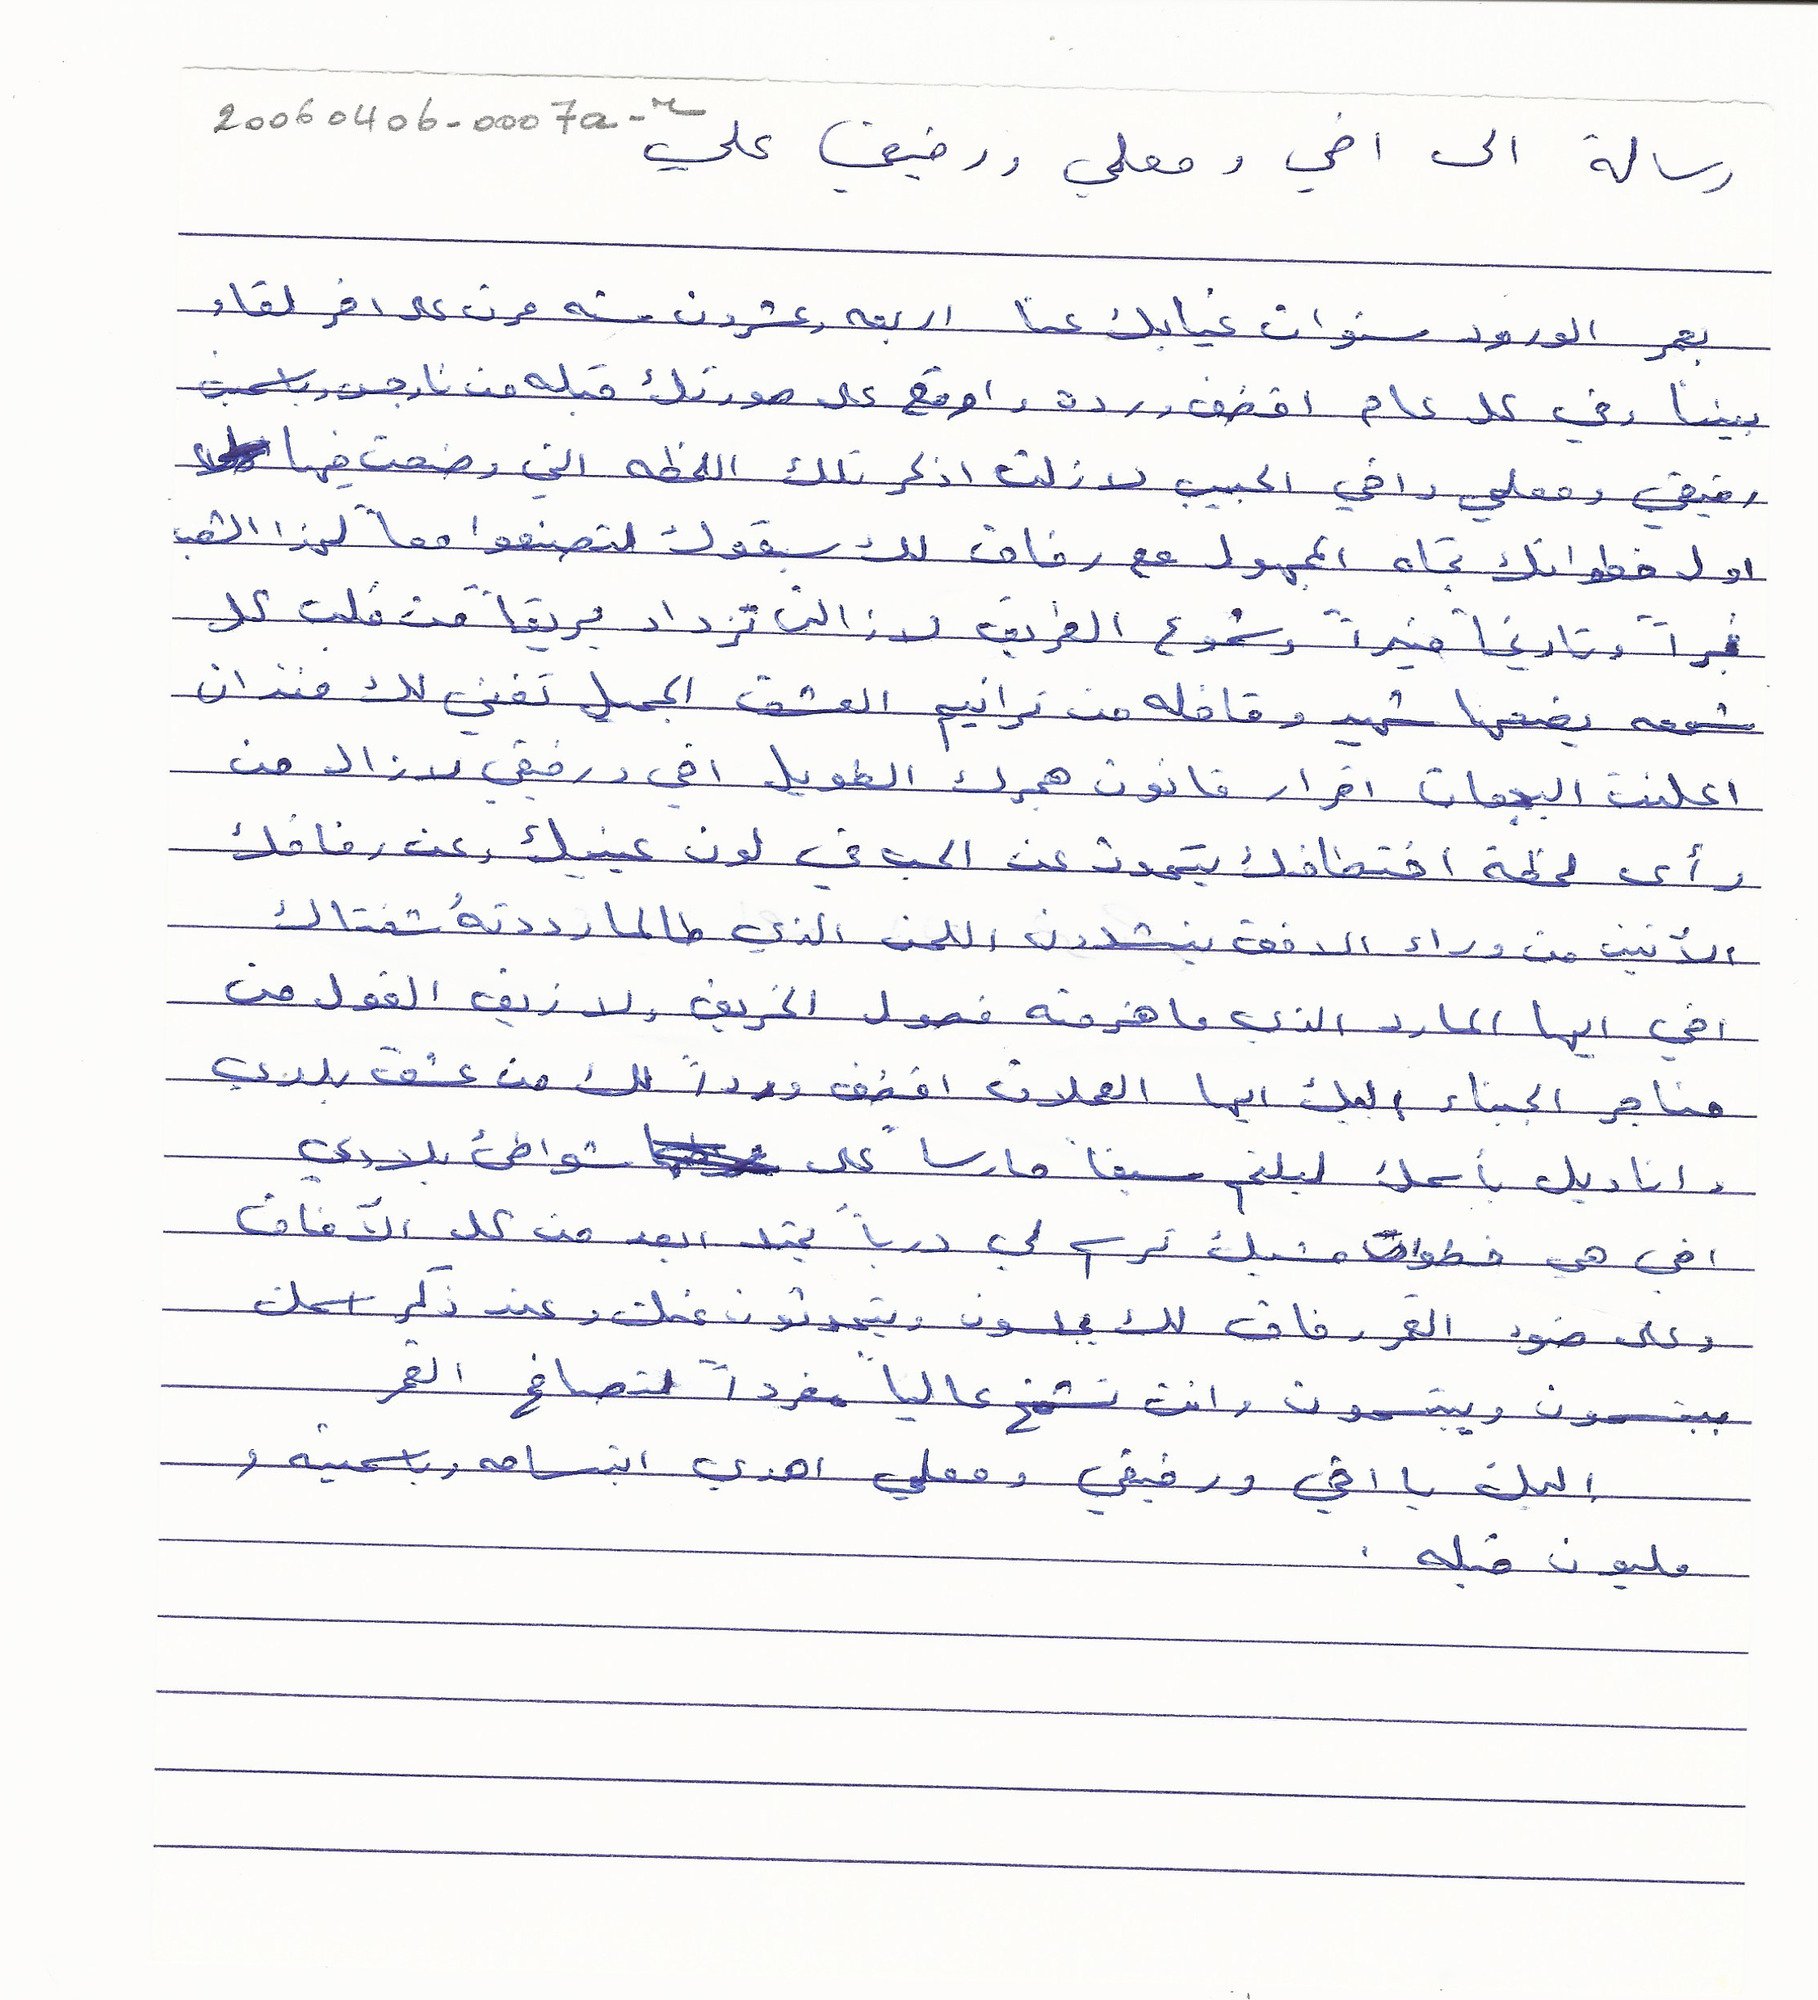 20060406-0007a-r
رسالة الى اخي ومعلمي ورفيقي علي
بعمر الورود سنوات غيابك عنا اربعه وعشرون سنه مرت على اخر لقاء
بيننا وفي كل عام اقطف ورده واوقع على صورتك قبله من نارجس وياسمين
رفيقي ومعلمي واخي الحبيب لا زلت اذكر تلك اللحظه التي وضعت فيها
اول خطواتك تجاه المجهول مع رفاق لك سبقوك لتصنعوا معاً لهذا الشعب
فجراً وتاريخاً منيراً وشموع الطريق لا زالت تزداد بريقاً من قلب كل
شمعه يضعها شهيد وقافله من ترانيم العشق الجميل تغني لك منذ ان
اعلنت اقرار قانون هجرك الطويل اخي ورفيقي لا زال من
رأى لحظة اختطافك يتحدث عن الحب في لون عينيك وعن رفاقك
الآتين من وراء الافق ينشدون اللحن الذي طالما رددتهُ شفتاك
اخي ايها المارد الذي ما هزمته فصول الخريف ولا زيف القول من
حناجر الجبناء إليك ايها العملاق اقطف ورداً لك من عشق بلدي
واناديل بأسمك ليلتم سيفاً حارساً على شواطئ بلادي
اخي هي خطوات مشيك ترسم لي درباً يمتد ابعد من كل الآفاق
وعلى ضوء القمر رفاق لك يجلسون ويتحدثون عنك وعند ذكر اسمك
يبتسمون ويبتسمون وانت تشمخ عالياً مفرداً لتصافح القمر
إليك يا اخي ورفيقي ومعلمي اهدي ابتسامه وياسمينه و
مليون قبله .